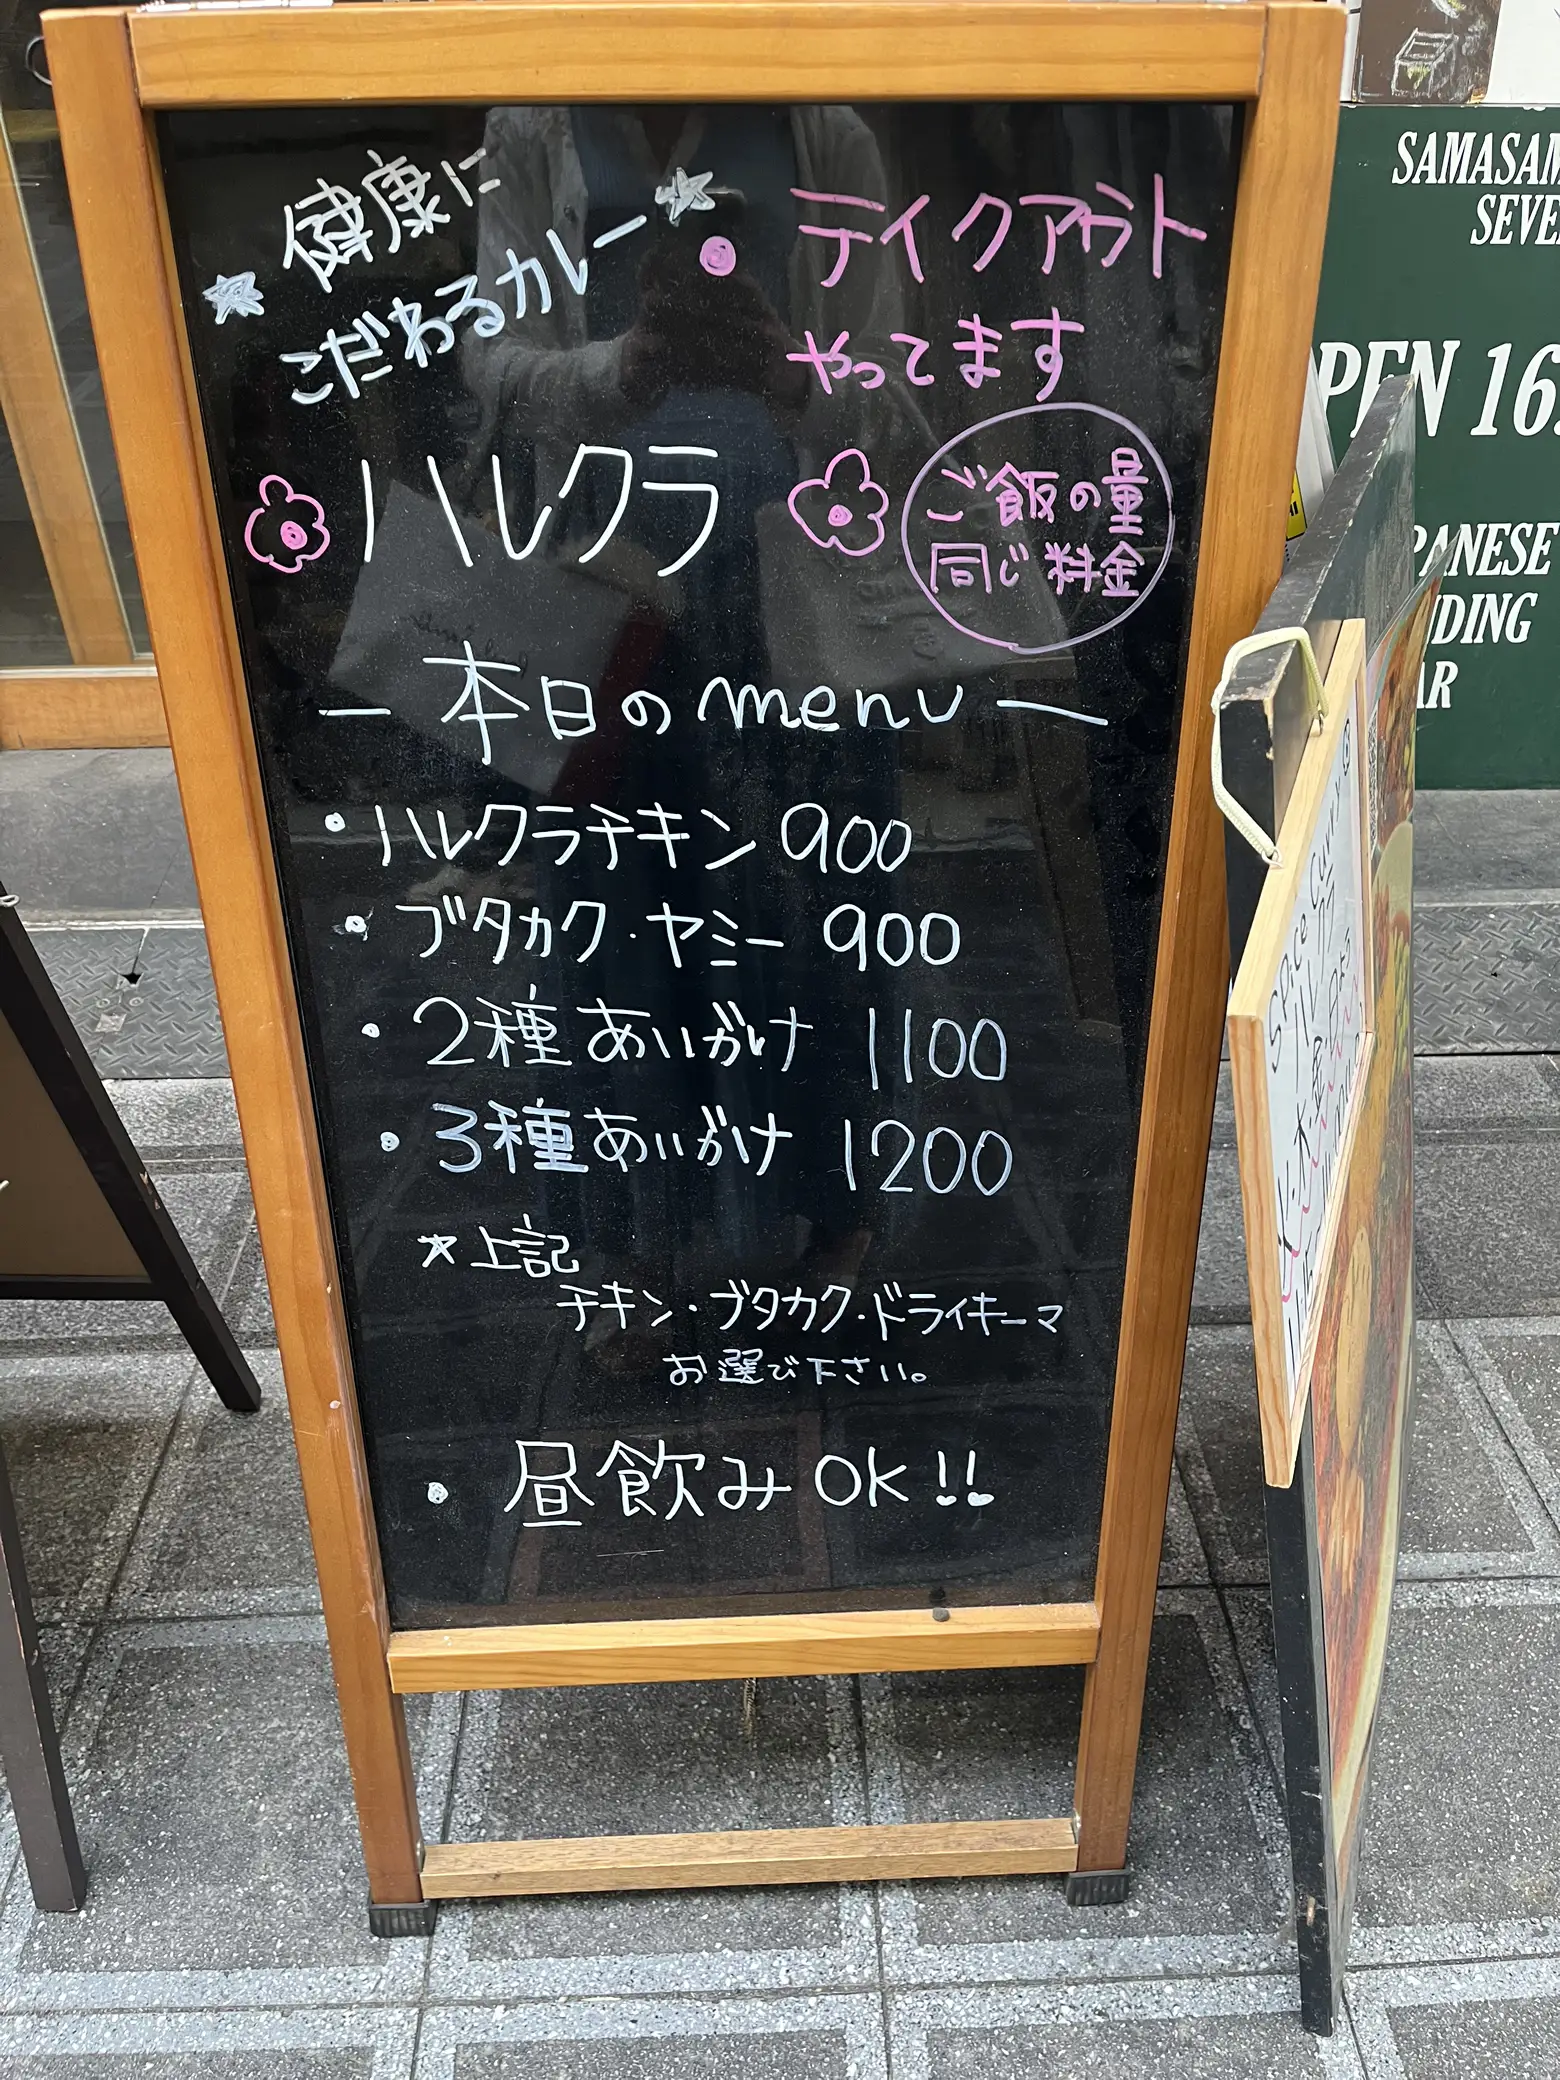 健康に
こだわるカレー
テイクアウト
やってます
ハルクラ
ご飯の量
同じ料金
本日のmenu
・ハルクラチキン 900
・ブタカク・ヤミー 900
・2種あいがけ 1100
・3種あいがけ 1200
☆上記
チキン・ブタカク・ドライキーマ
お選び下さい。
・昼飲みOK!!
SAMASAM
SEVE
OPEN 16:
PANESE
NDING
AR
Spice Curry
ハルクラ